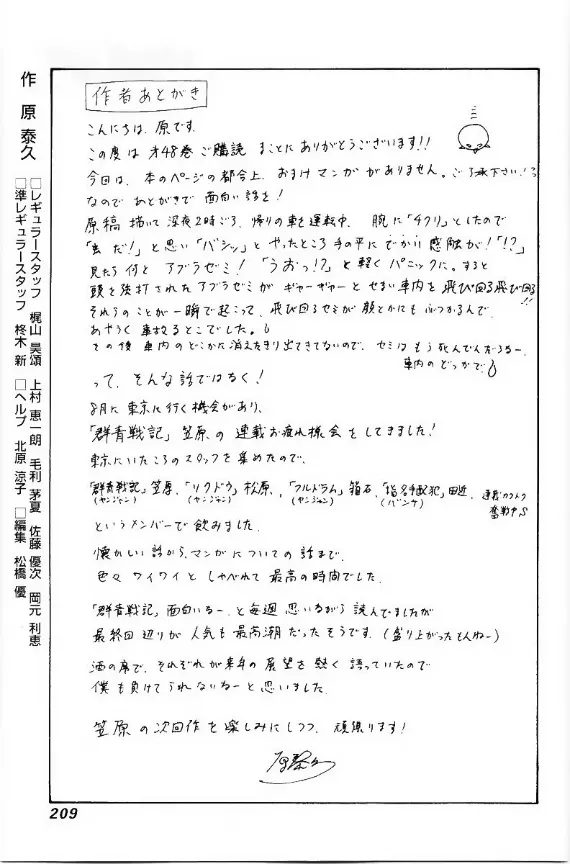 作 原 泰久
□レギュラースタッフ 梶山 昊頌 上村 恵一朗 毛利 茅夏 佐藤 優次 岡元 利恵
□準レギュラースタッフ 柊木 新 □ヘルプ 北原 涼子 □編集 松橋 優
作者あとがき
こんにちは、原です。
この度は 才48巻 ご購読 まことにありがとうございます!!
今回は、本のページの都合上、おまけマンガがありません。ご了承下さい!
なので あとがきで 面白い話を!
原稿 描いて 深夜2時ごろ、帰りの車を運転中、腕に「チクリ」としたので
「虫だ!」と思い「バシッ」とやったところ 手の平に でかい 感触が!「!?」
見たら何と アブラゼミ!「うおっ!?」と軽くパニックに。すると
頭を強打されたアブラゼミが ギャーギャーと せまい車内を 飛び回る飛び回る!!
それらのことが一瞬で起こって、飛び回るセミが顔とかにもぶつかるんで、
あやうく 事故るとこでした。
その後 車内のどこかに消えたきり出てきてないので、セミはもう死んでんだろなー、
車内のどっかで
って、そんな話ではなく!
8月に東京に行く機会があり、
「群青戦記」笠原の 連載お疲れ様会をしてきました!
東京にいたころのスタッフを集めたので、
「群青戦記」笠原、「リクドウ」松原、「フルドラム」箱石、「指名手配犯」田近、
(ヤンジャン) (ヤンジャン) (ヤンジャン)
というメンバーで飲みました。
懐かしい話から、マンガについての話まで、
色々 ワイワイと しゃべれて 最高の時間でした。
「群青戦記」面白いなー、と毎週 思いながら 読んでましたが
最終回辺りが 人気も最高潮だったそうです、(盛り上がったもんねー)
酒の席で、それぞれが来年の 展望を 熱く 語っていたので
僕も負けてられないなーと思いました。
笠原 の次回作を楽しみにしつつ、頑張ります!
原泰久
209